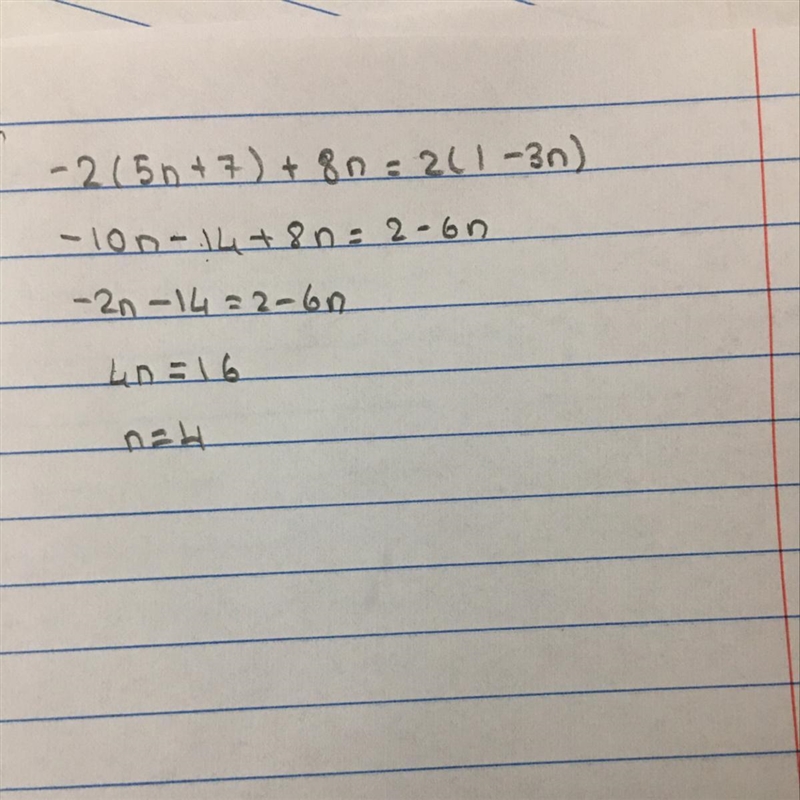 -2(5n+7) + 8n = 2(1 -3n)
-10n - 14 + 8n = 2 - 6n
-2n - 14 = 2 - 6n
4n = 16
n = 4